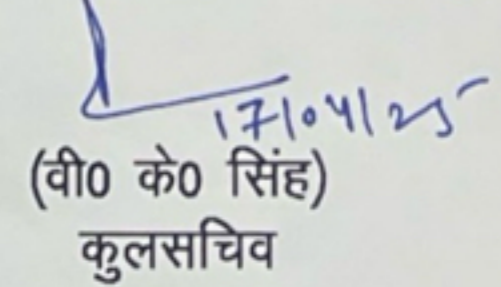 17/04/25
(वी0 के0 सिंह)
कुलसचिव